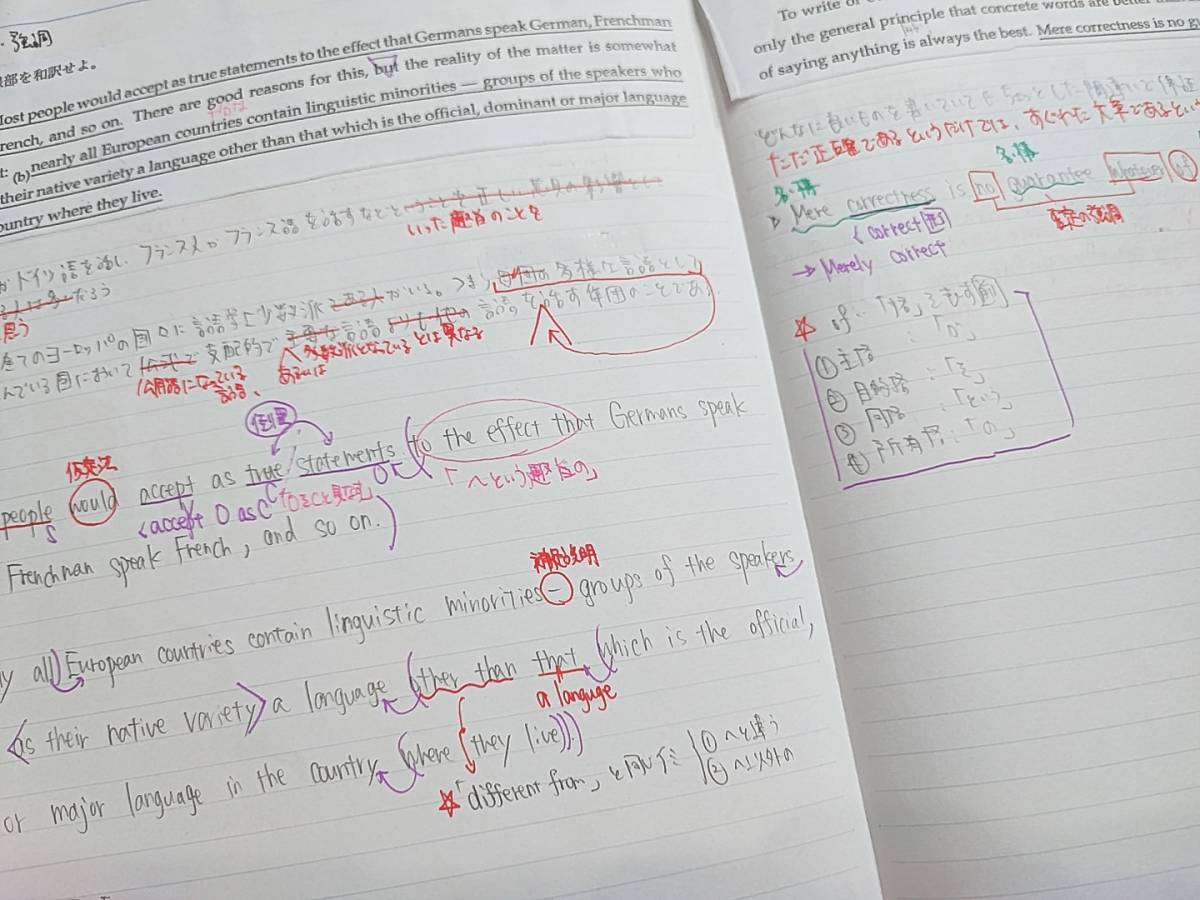 ・強調
部を和訳せよ。
Most people would accept as true statements to the effect that Germans speak German, Frenchman
French, and so on. There are good reasons for this, but the reality of the matter is somewhat
t: (b)nearly all European countries contain linguistic minorities — groups of the speakers who
their native variety a language other than that which is the official, dominant or major language
ountry where they live.
がドイツ語を話し、フランス人がフランス語を話すなどと
いった趣旨のことを
だろう
思う
全てのヨーロッパの国々に言語学上少数派 がいる。つまり 多様な言語として
言語を話す集団のことである
んでいる国において 支配的で 言語
多数派となっている とは異なる
公用語になっている
言語、
あるいは
倒置
仮定法
people would accept as true statements (to the effect that Germans speak
S
O
<accept O as C 「OをCと見なす」
「〜という趣旨の」
Frenchman speak French, and so on.)
補足説明
y all) European countries contain linguistic minorities — groups of the speakers
<as their native variety> a language (other than that (which is the official,
a languge
or major language in the country (where (they live)))
☆「different from」と同じく ①〜と違う
②〜以外の
To write
only the general principle that concrete words are better
of saying anything is always the best. Mere correctness is no
どんなに良いものを書いていてもちょっとした間違いで
ただ正確であるというだけでは、すぐれた文章であるとい
名・構
名・構
▷ Mere correctness is no guarantee whatever of
<correct 形
否定の強調
→ Merely correct
☆ of…「格」を示す
①主格:「が」
②目的格:「を」
③同格:「という」
④所有格:「の」